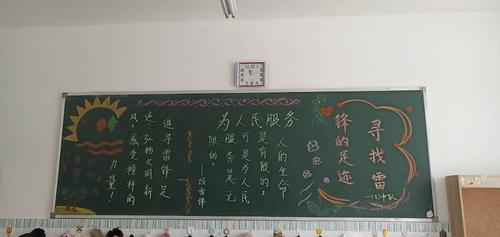 寻找雷
锋的足迹
为人民服务
人的生命
是有限的，
可是为人民
服务是无
限的。
——颂雷锋
追寻雷锋足
迹，弘扬文明新
风，感受榜样的
力量！